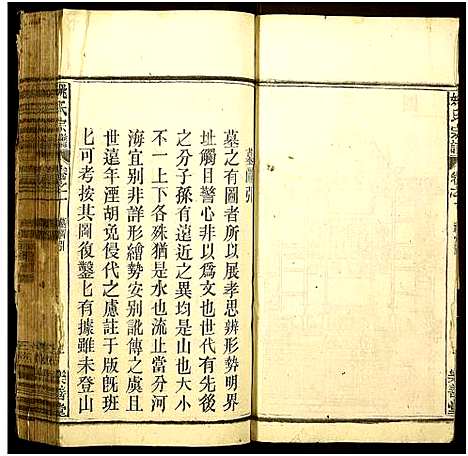 墓圖引
墓之有圖者所以展孝思辨形勢明界
址觸目警心非以為文也世代有先後
之分子孫有遠近之異均是山也大小
不一上下各殊猶是水也流止當分河
海宜別非詳形繪勢安別訛傳之虞且
世遠年湮胡免侵代之慮註于版旣班
匕可考按其圖復鑿匕有據雖未登山
姚氏宗譜
卷之一
墓圖引
樂善堂
姚氏宗譜
卷之一
樂善堂